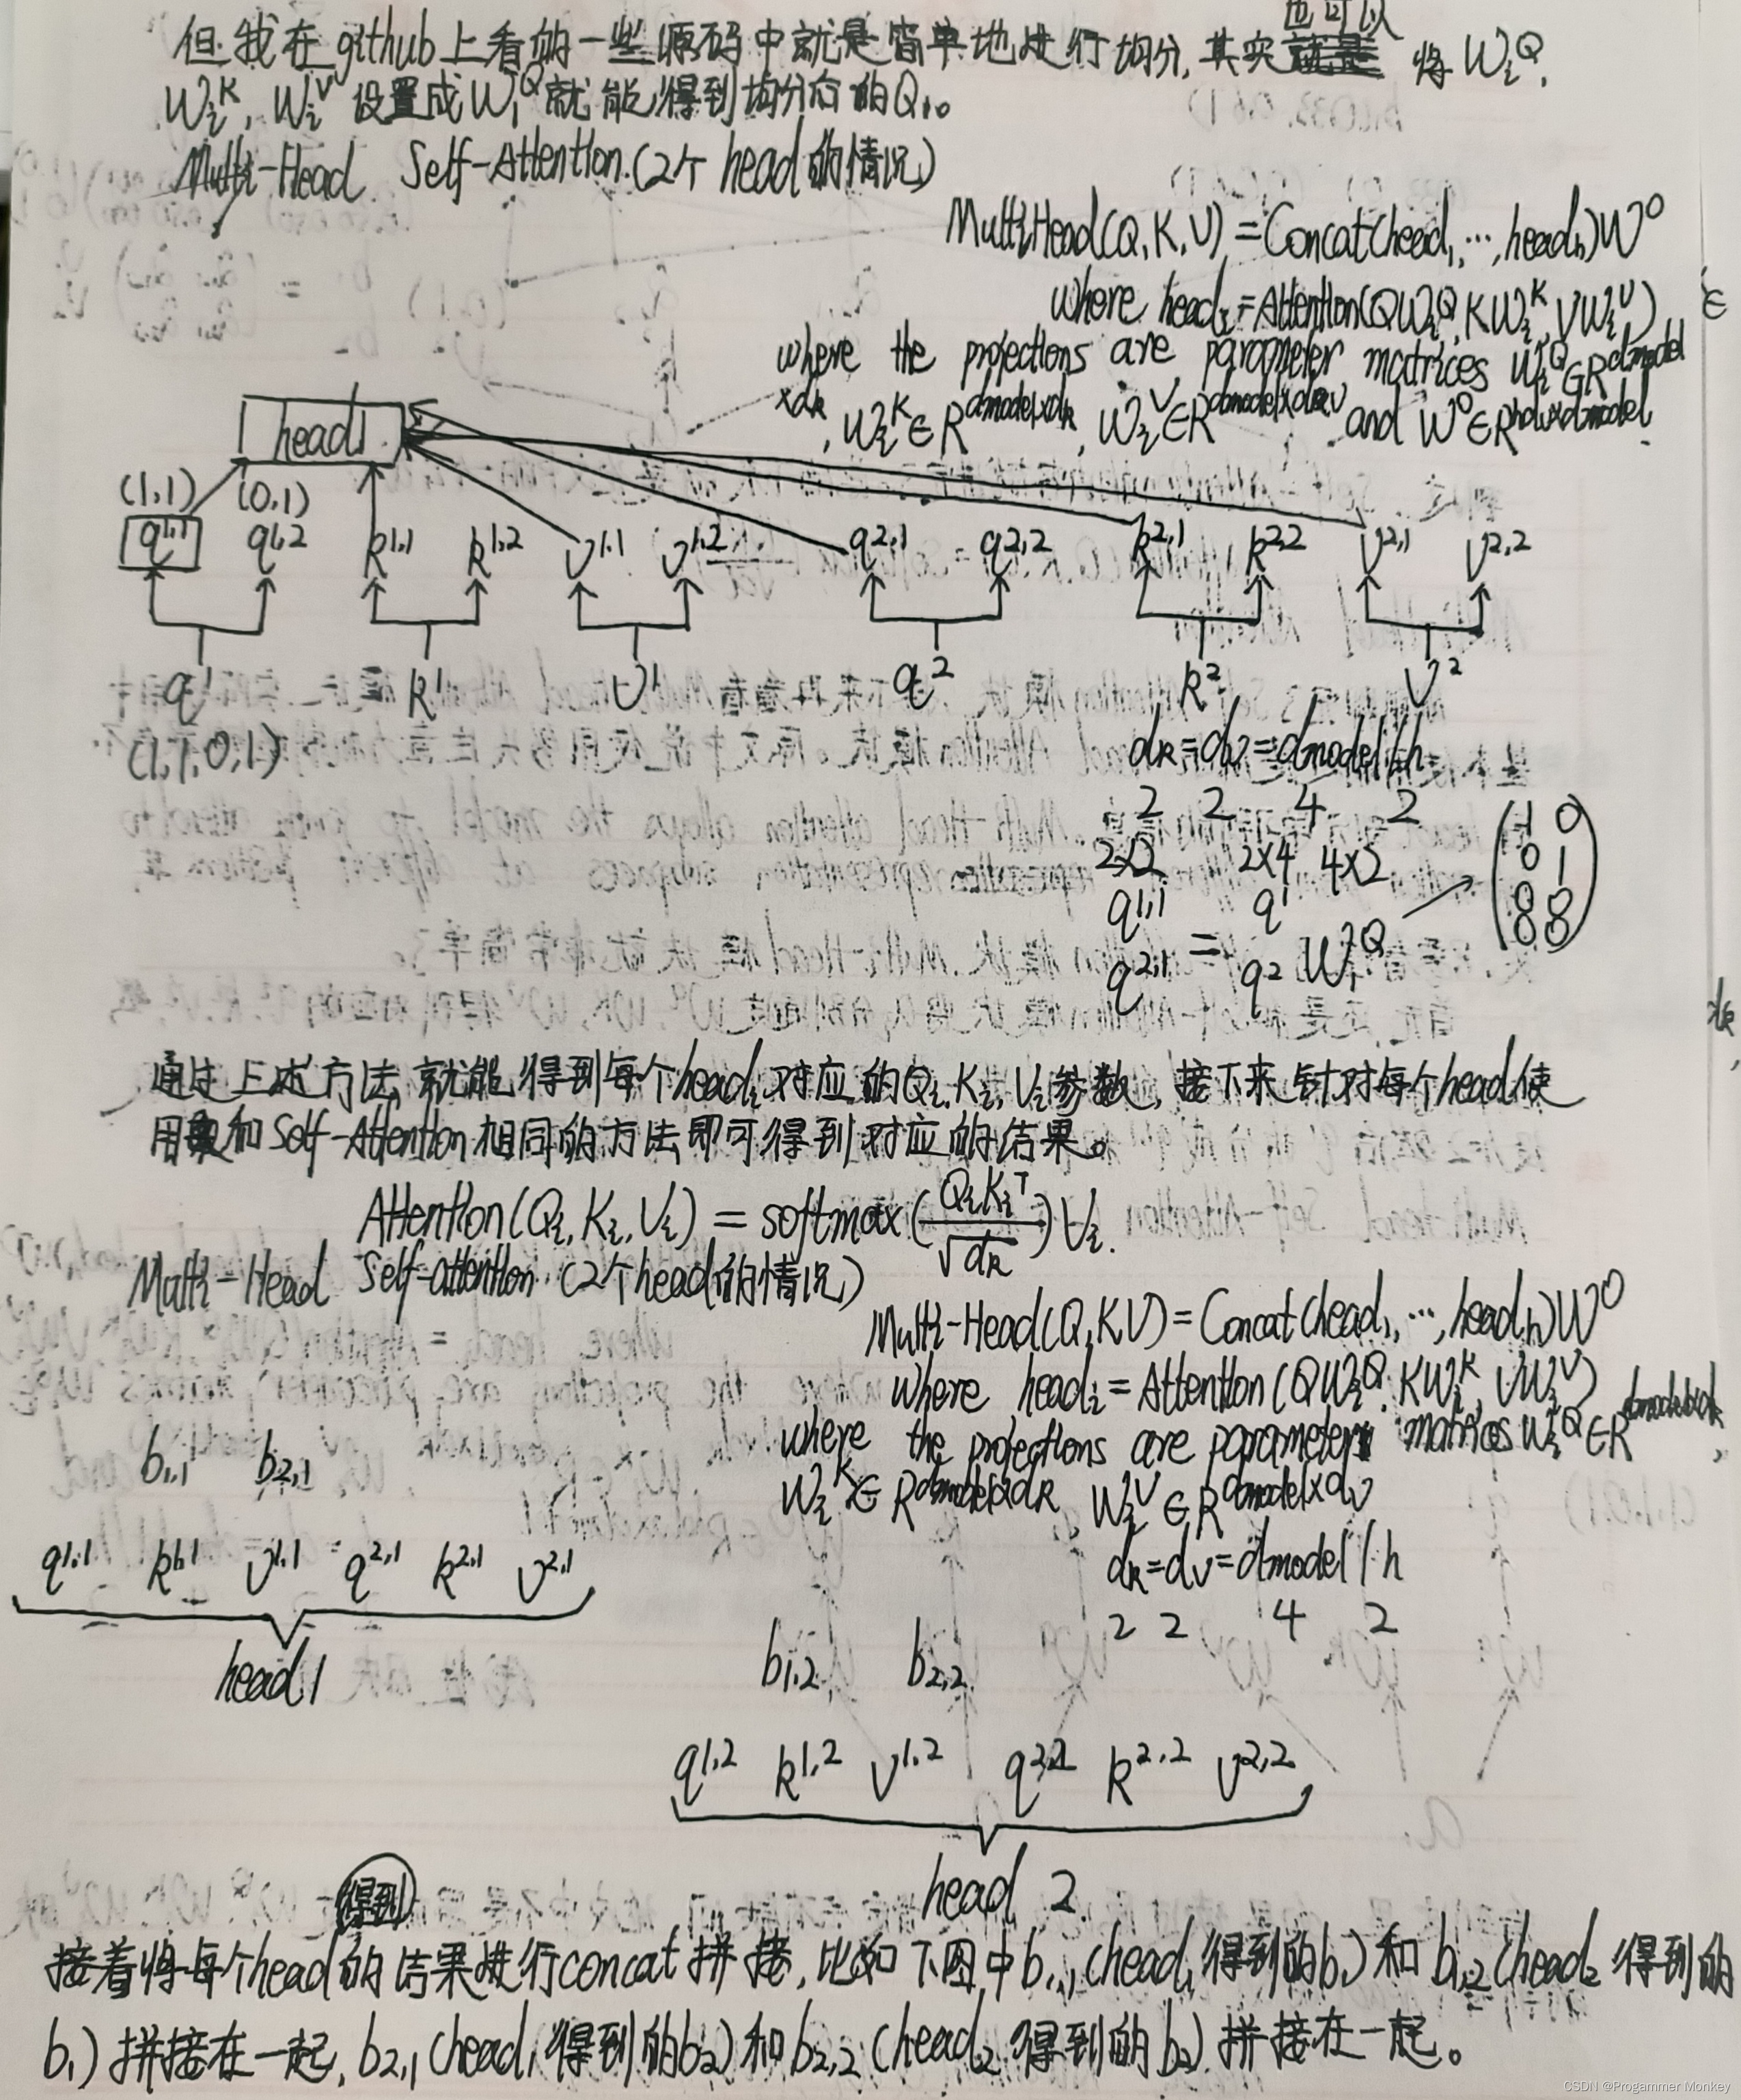 也可以
但我在github上看的一些源码中就是简单地进行均分,其实就是 将 WiQ,
WiK, WiV 设置成W1Q就能得到均分后的Q1。
Multi-Head Self-Attention.(2个head的情况)
MultiHead(Q,K,V)=Concat(head1,…,headh)WO
where headi=Attention(QWiQ,KWiK,VWiV)
where the projections are parameter matrices WiQ∈Rdmodel
×dk, WiK∈Rdmodel×dk, WiV∈Rdmodel×dv and WO∈Rhdv×dmodel
head1
(1,1) (0,1)
q1,1 q1,2 k1,1 k1,2 v1,1 v1,2 q2,1 q2,2 k2,1 k2,2 v2,1 v2,2
q1 k1 v1 q2 k2 v2
(1,1,0,1)
dk=dv=dmodel/h
2 2 4 2
2×2 2×4 4×2
q1,1 q1
= W1Q
q2,1 q2
1 0
0 1
0 0
0 0
通过上述方法,就能得到每个headi对应的Qi,Ki,Vi参数,接下来针对每个head使
用和Self-Attention相同的方法即可得到对应的结果。
Attention(Qi,Ki,Vi)=softmax(QiKiT/√dk)Vi.
Multi-Head Self-attention.(2个head的情况)
Multi-Head(Q,K,V)=Concat(head1,…,headh)WO
where headi=Attention(QWiQ,KWiK,VWiV)
where the projections are parameter matrices WiQ∈Rdmodel×dk,
WiK∈Rdmodel×dk WiV∈Rdmodel×dv
dk=dv=dmodel/h
2 2 4 2
b1,1 b2,1
q1,1 k1,1 v1,1 q2,1 k2,1 v2,1
head1
b1,2 b2,2
q1,2 k1,2 v1,2 q2,2 k2,2 v2,2
head 2
得到
接着将每个head的结果进行concat拼接,比如下图中b1,1(head1得到的b1)和b1,2(head2得到的
b1)拼接在一起,b2,1(head1得到的b2)和b2,2(head2得到的b2)拼接在一起。
CSDN @Progammer Monkey